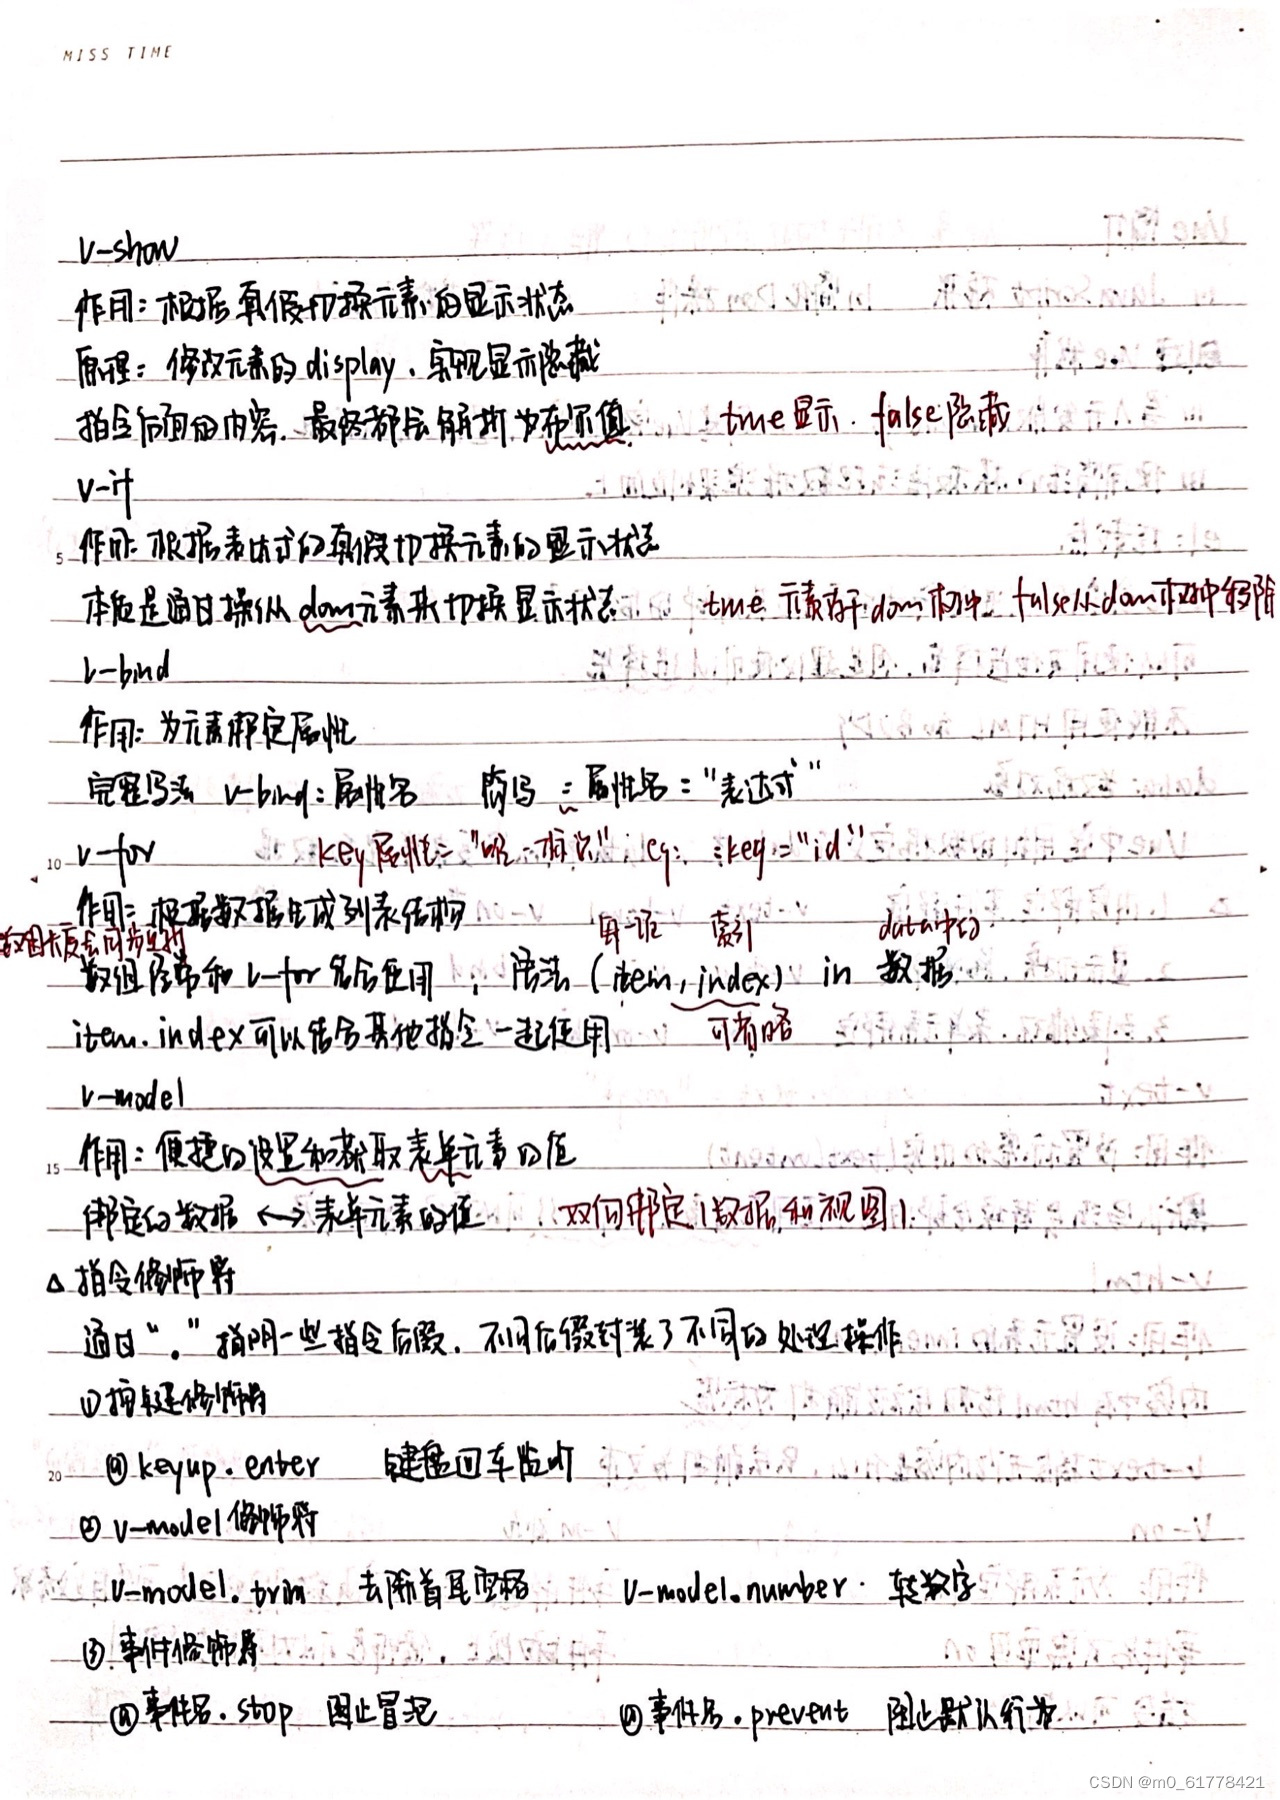 MISS TIME
v-show
作用：根据真假切换元素的显示状态
原理：修改元素的display，实现显示隐藏
指令后面的内容，最终都会解析为布尔值 true显示，false隐藏
v-if
5 作用：根据表达式的真假切换元素的显示状态
本质是通过操纵dom元素来切换显示状态 true 元素存于dom树中，false从dom树中移除
v-bind
作用：为元素绑定属性
完整写法 v-bind：属性名 简写 ：属性名="表达式"
10 v-for key属性="唯一标识" eg: :key="id"
作用：根据数据生成列表结构
每一项 索引 data中的
数组经常和v-for结合使用，语法(item,index) in 数据
item.index可以结合其他指令一起使用 可省略
v-model
15 作用：便捷的设置和获取表单元素的值
绑定的数据 <-> 表单元素的值 双向绑定(数据和视图)
△ 指令修饰符
通过"."指明一些指令后缀，不同后缀封装了不同的处理操作
① 按键修饰符
20 @keyup.enter 键盘回车监听
② v-model修饰符
v-model.trim 去除首尾空格 v-model.number 转数字
③ 事件修饰符
@事件名.stop 阻止冒泡 @事件名.prevent 阻止默认行为
CSDN @m0_61778421